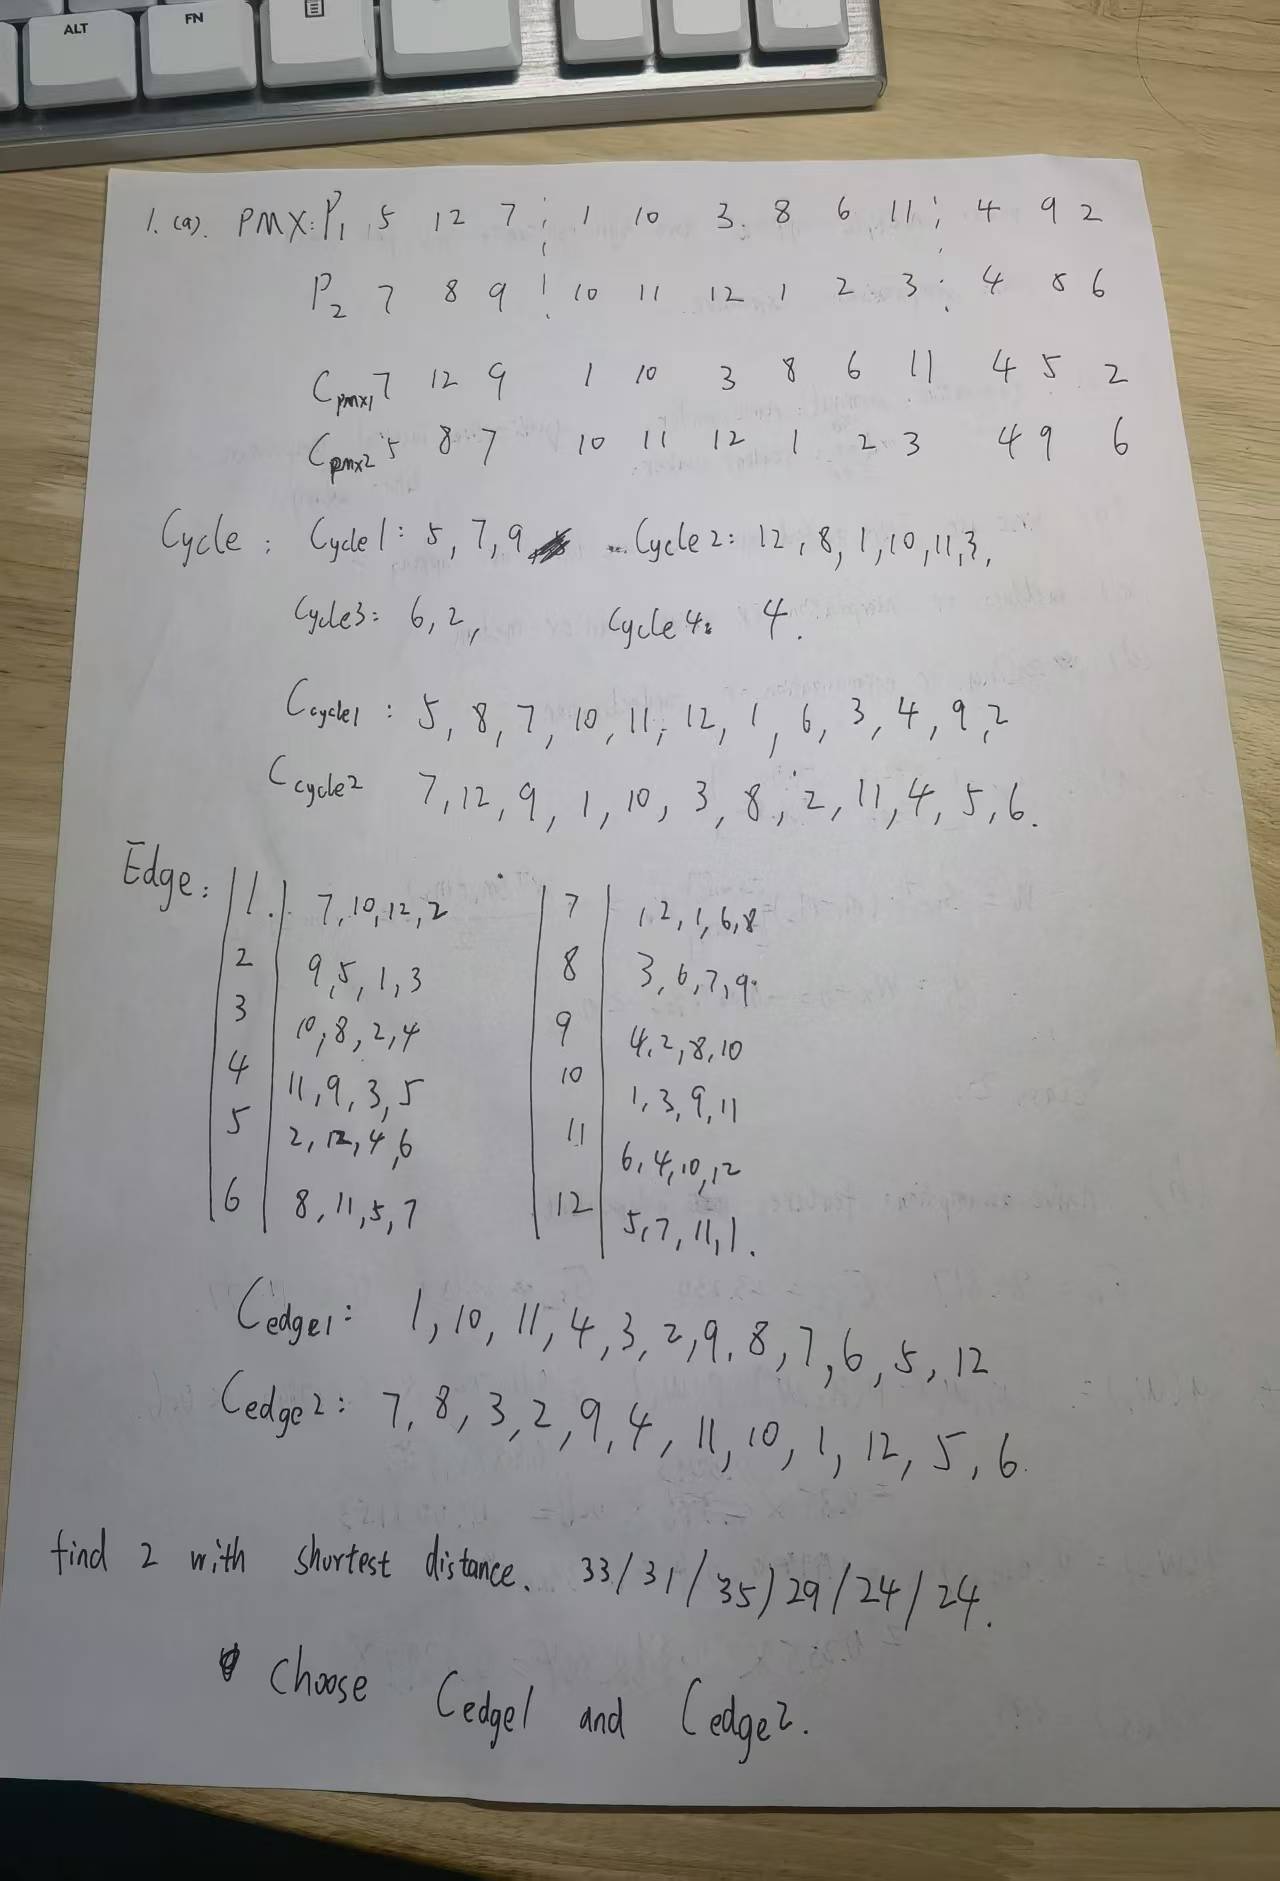 ALT FN
1. (a). PMX: P1 5 12 7 ¦ 1 10 3. 8 6 11 ¦ 4 9 2
P2 7 8 9 ¦ 10 11 12 1 2 3 ¦ 4 5 6
Cpmx1 7 12 9 1 10 3 8 6 11 4 5 2
Cpmx2 5 8 7 10 11 12 1 2 3 4 9 6
Cycle: Cycle1: 5, 7, 9 Cycle2: 12, 8, 1, 10, 11, 3,
Cycle3: 6, 2, Cycle4: 4.
Ccycle1: 5, 8, 7, 10, 11, 12, 1, 6, 3, 4, 9, 2
Ccycle2 7, 12, 9, 1, 10, 3, 8, 2, 11, 4, 5, 6.
Edge: | 1. | 7, 10, 12, 2 | 7 | 12, 1, 6, 8
2 9, 5, 1, 3 8 3, 6, 7, 9.
3 10, 8, 2, 4 9 4, 2, 8, 10
4 11, 9, 3, 5 10 1, 3, 9, 11
5 2, 12, 4, 6 11 6, 4, 10, 12
6 8, 11, 5, 7 12 5, 7, 11, 1.
Cedge1: 1, 10, 11, 4, 3, 2, 9, 8, 7, 6, 5, 12
Cedge2: 7, 8, 3, 2, 9, 4, 11, 10, 1, 12, 5, 6.
find 2 with shortest distance. 33/31/35/29/24/24.
choose Cedge1 and Cedge2.